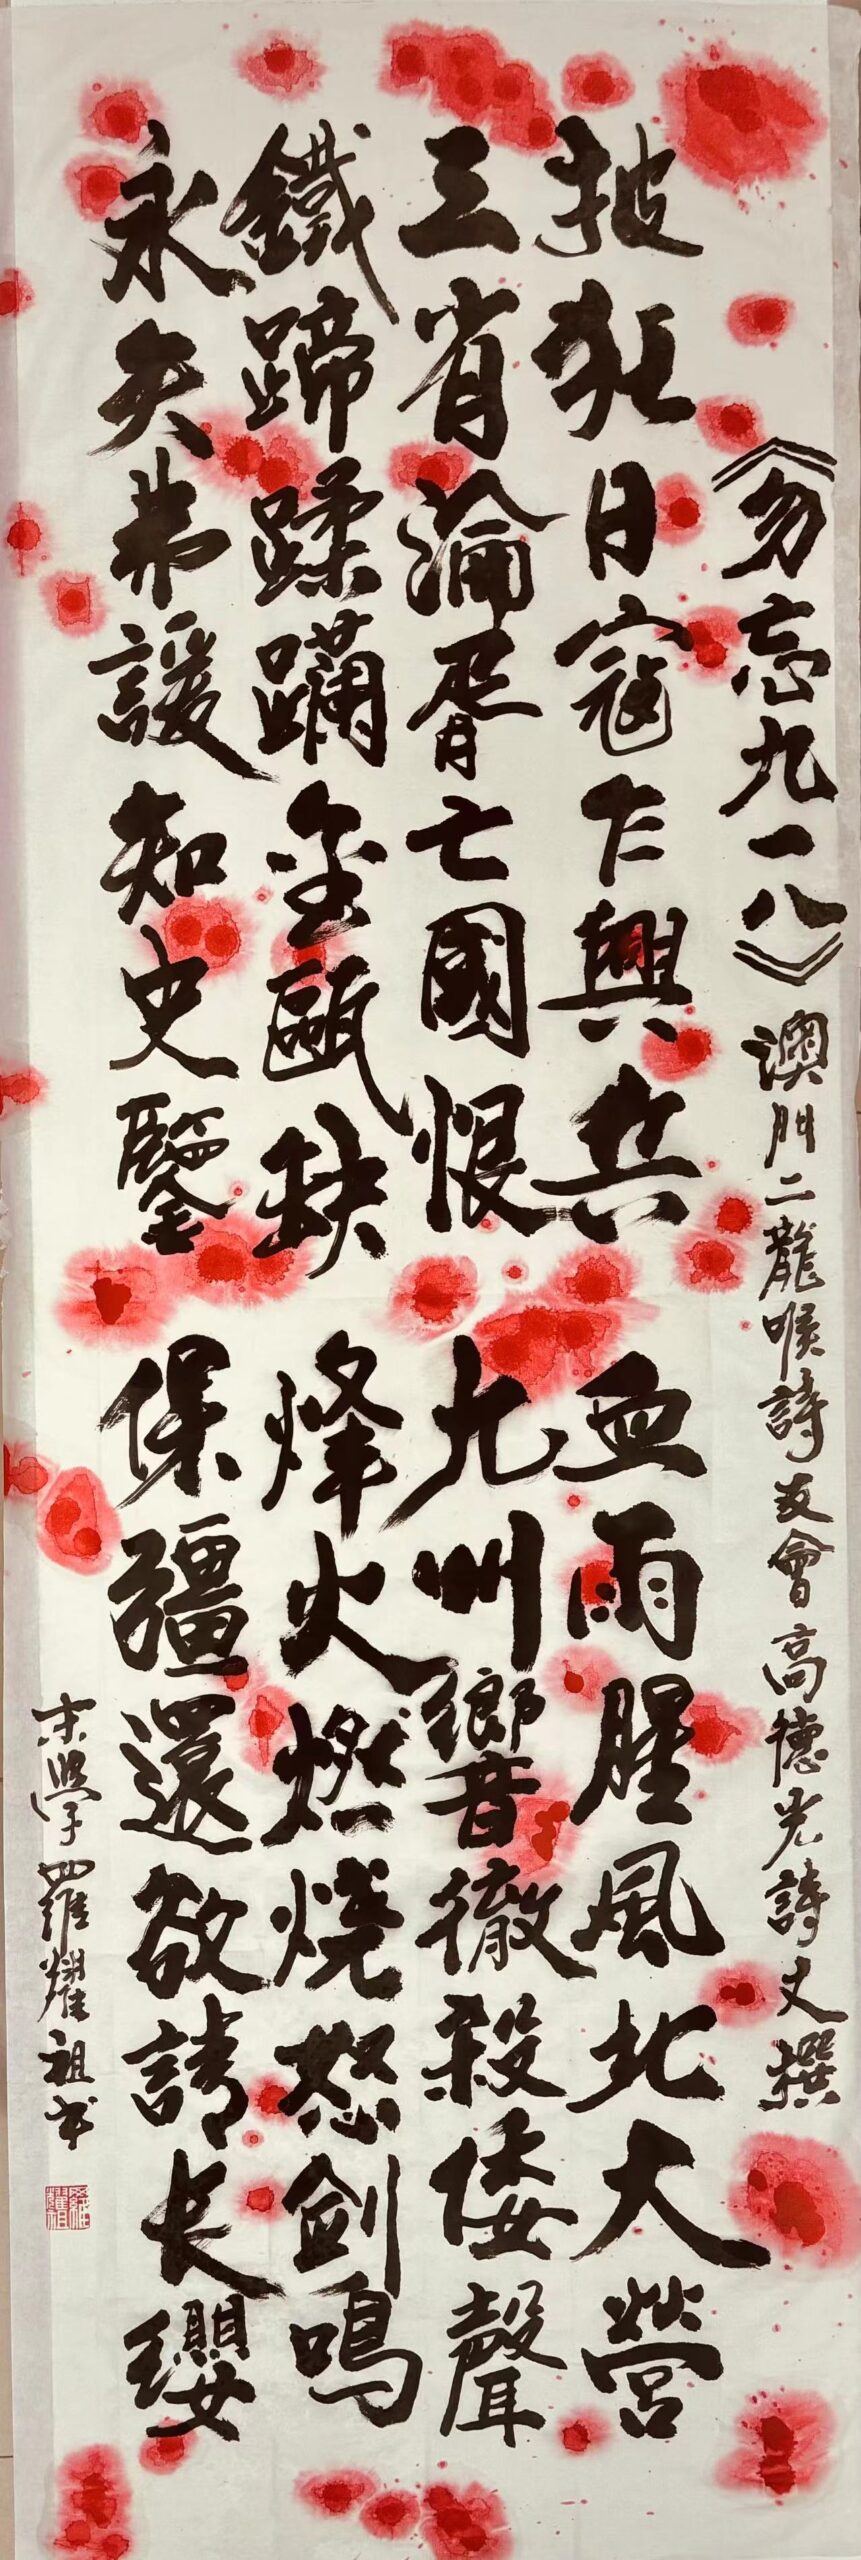 《勿忘九一八》澳門二龍喉詩友會高德光詩丈撰
披猖日寇乍興兵 血雨腥風北大營
三省淪胥亡國恨 九州響徹殺倭聲
鐵蹄蹂躪金甌缺 烽火燃燒怒劍鳴
永矢弗諼知史鑒 保疆還欲請长纓
末學羅耀祖书
羅耀祖